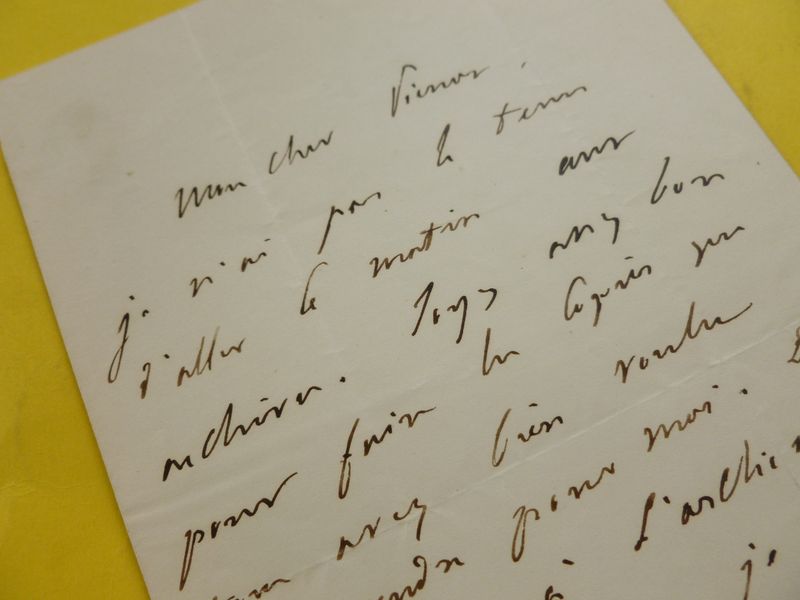 Mon cher Vienot,
je n'ai pas le tems
d'aller le matin aux
archives. Soyez assez bon
pour faire les copies que
vous avez bien voulu
prendre pour moi.
à l'archiv
je